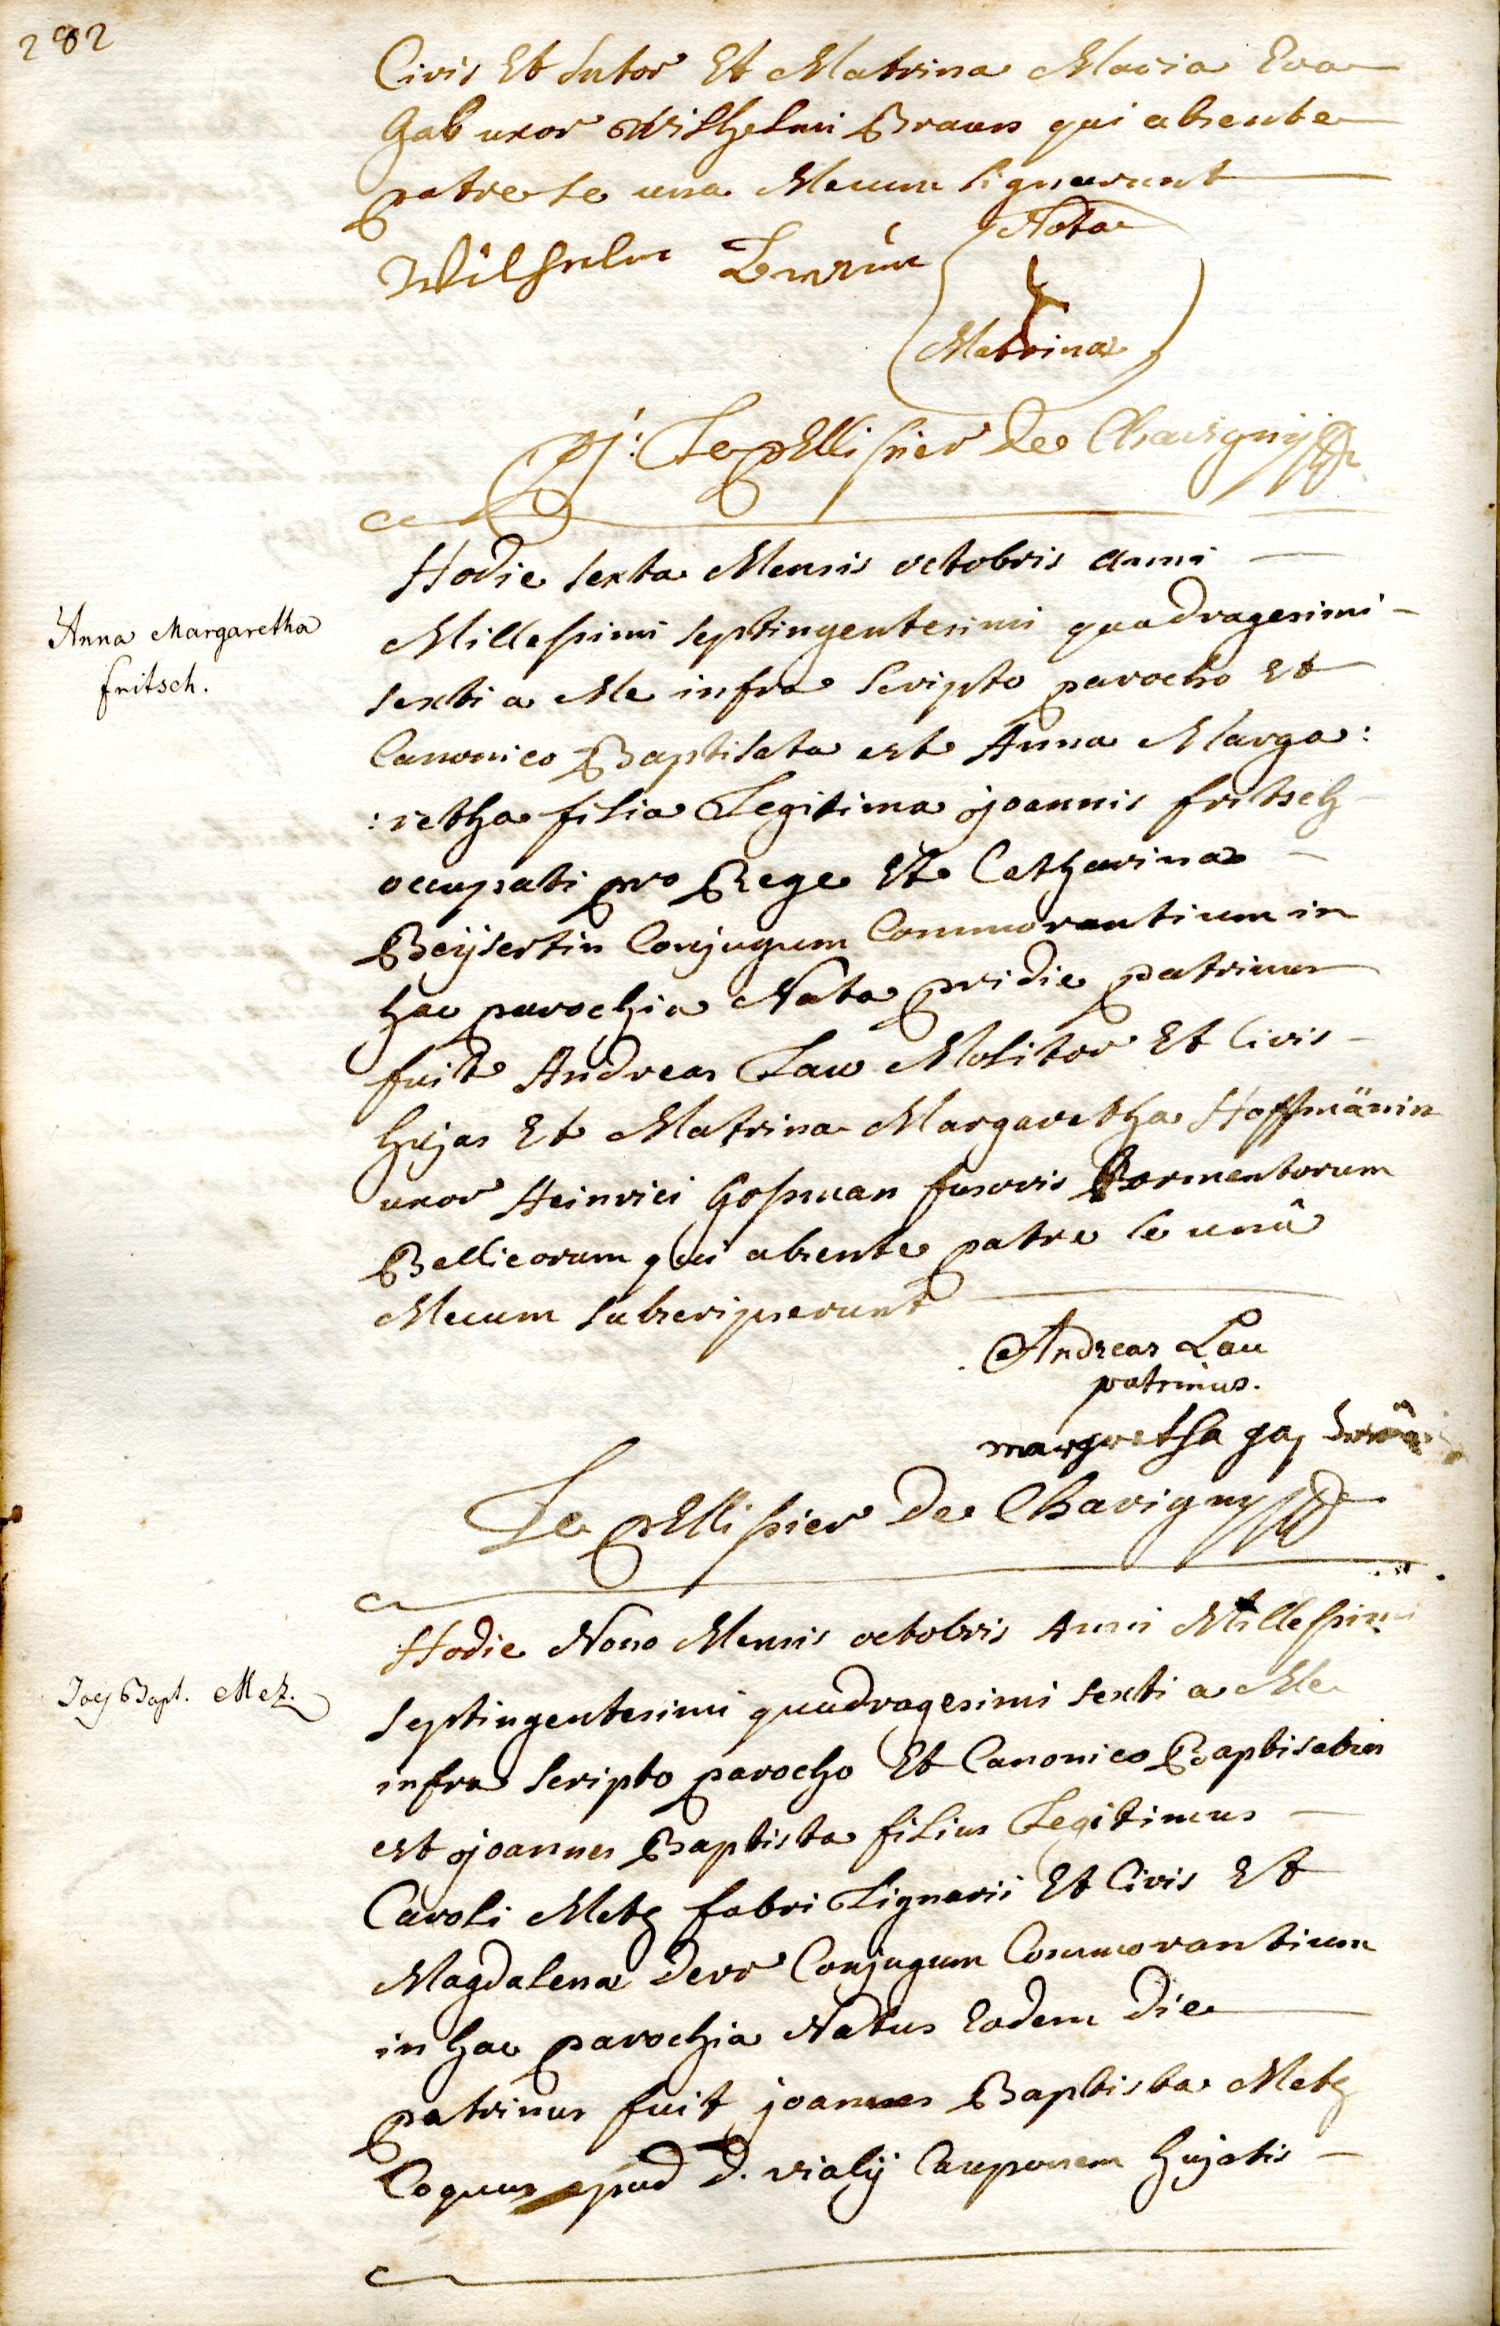 282
Civis Et Sutor Et Matrina Maria Eva
Gab uxor Wilhelmi Braun qui absente
patre se una Mecum signarunt
Nota
Wilhelm
Matrina
J: Le pEllissier De Chavigny
Hodie sexta Mensis octobris anni
Anna Margaretha
fritsch.
Millessimi septingentesimi quadragesimi
sexti a Me infra scripto parocho Et
Canonico Baptisata est Anna Marga:
:retha filia Legitima joannis fritsch
occupati pro Rege Et Catharina
Beÿsertin Conjugum Commorantium in
hac parochia Nata pridie patrinus
fuit Andreas Lau Molitor Et Civis
hujas Et Matrina Margaretha Hoffmänin
uxor Heinrici Gossman fusoris Tormentorum
Bellicorum qui absente patre se unâ
Mecum subscripserunt
Andreas Lau
patrinus.
margretha
Le pEllissier De Chavigny
Hodie Nono Mensis octobris Anni Millessimi
Joes Bapt. Mez.
septingentesimi quadragesimi sexti a Me
infra scripto parocho Et Canonico Baptisatus
est joannes Baptista filius Legitimus
Caroli Metz fabri Lignarii Et Civis Et
Magdalena Derr Conjugum Commorantium
in hac parochia Natus Eodem Die
patrinus fuit joannes Baptista Metz
Coquus apud D. vialÿ Cauponem hujatis